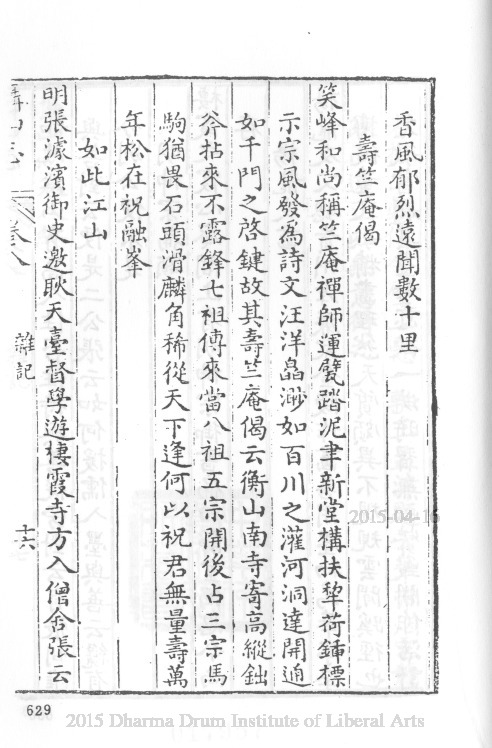 香風郁烈遠聞數十里
壽竺庵偈
笑峰和尚稱竺庵禪師運甓踏泥聿新堂構扶犂荷鍤標
示宗風發為詩文汪洋晶渺如百川之灌河洞達開逈
如千門之啓鍵故其壽竺庵偈云衡山南寺寄高縱鈯
斧拈來不露鋒七祖傳來當八祖五宗開後占三宗馬
駒猶畏石頭滑麟角稀從天下逢何以祝君無量壽萬
年松在祝融峯
如此江山
明張濾濱御史邀耿天臺督學遊棲霞寺方入僧舍張云
卷八
雜記
十六
629
2015-04-16
2015 Dharma Drum Institute of Liberal Arts